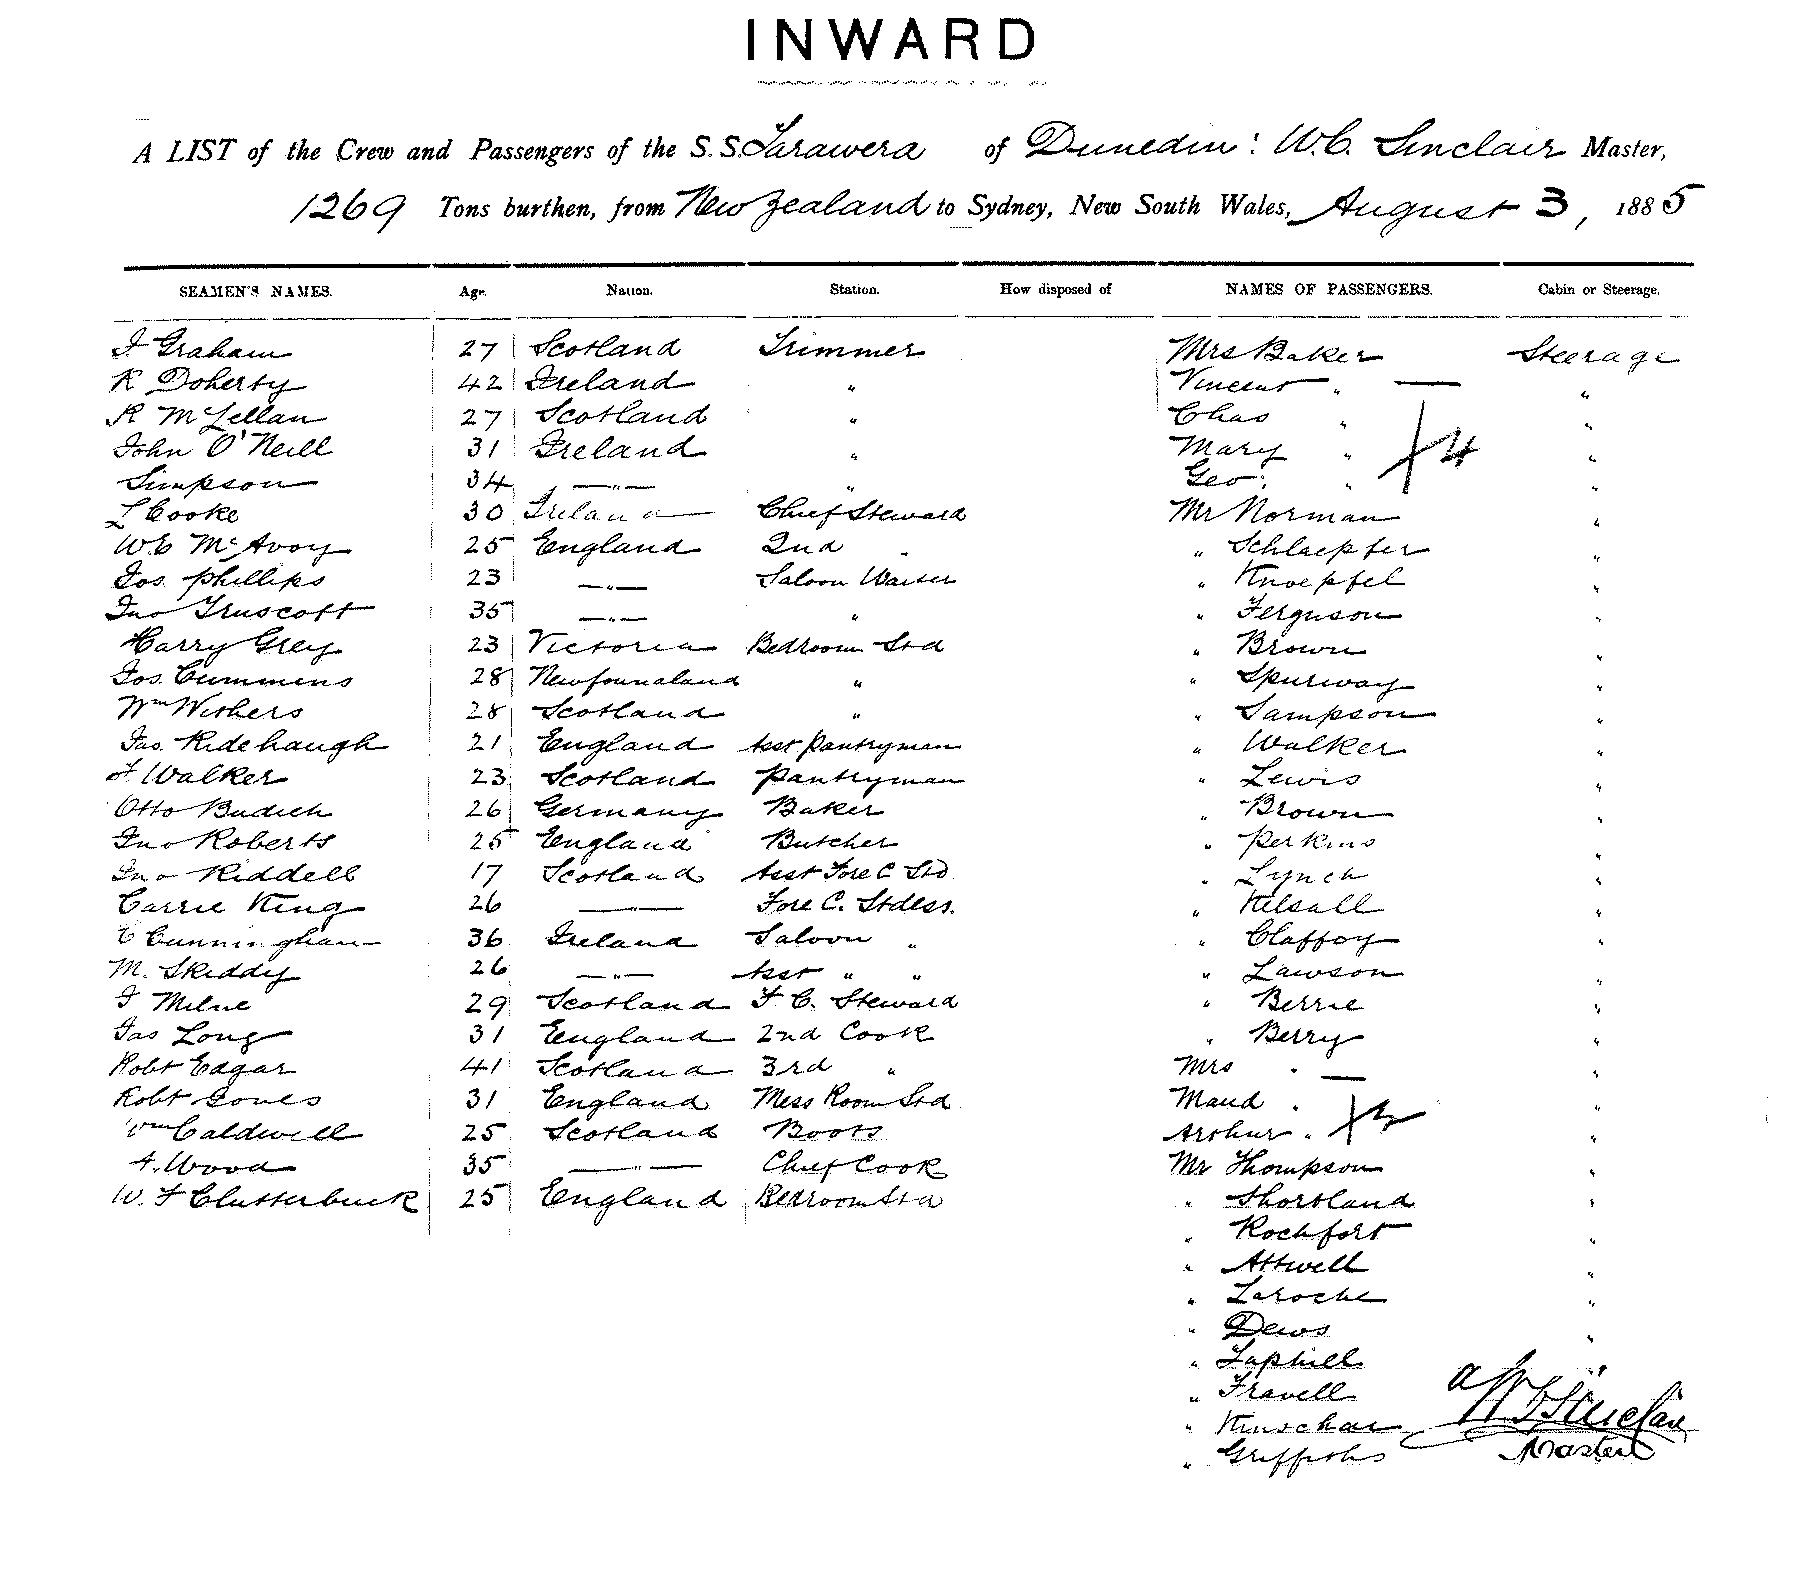 INWARD
A LIST of the Crew and Passengers of the S.S. Tarawera of Dunedin: W.C. Sinclair Master,
1269 Tons burthen, from New Zealand to Sydney, New South Wales, August 3, 1885
SEAMEN'S NAMES. Age. Nation. Station. How disposed of NAMES OF PASSENGERS. Cabin or Steerage.
J Graham 27 Scotland Trimmer Mrs Baker Steerage
R Doherty 42 Ireland " Vincent " — "
R McLellan 27 Scotland " Chas " "
John O'Neill 31 Ireland " Mary " 4 "
Simpson 34 —"— " Geo: " "
L Cooke 30 Ireland Chief Steward Mr Norman "
W.C McAvoy 25 England 2nd " " Schlaepfer "
Jos. Phillips 23 —"— Saloon Waiter " Knoepfel "
Jno Truscott 35 —"— " " Ferguson "
Harry Grey 23 Victoria Bedroom Std " Brown "
Jos. Cummens 28 Newfoundland " " Spurway "
Wm Withers 28 Scotland " " Sampson "
Jas. Ridehaugh 21 England Asst Pantryman " Walker "
J. Walker 23 Scotland Pantryman " Lewis "
Otto Budich 26 Germany Baker " Brown "
Jno Roberts 25 England Butcher " Perkins "
Jno Riddell 17 Scotland Asst Fore C Std " Lynch "
Carrie King 26 —— Fore C. Stdess. " Kelsall "
C Cunningham 36 Ireland Saloon " " Claffoy "
M. Skiddy 26 —"— Asst " " " Lawson "
J Milne 29 Scotland F C. Steward " Berrie "
Jas Long 31 England 2nd Cook " Berry "
Robt Edgar 41 Scotland 3rd " Mrs " — "
Robt Jones 31 England Mess Room Std Maud " "
Wm Caldwell 25 Scotland Boots Arthur " "
A. Wood 35 —"— Chief Cook Mr Thompson "
W. F Clutterbuck 25 England Bedroom Std " Shortland "
" Rochfort "
" Attwell "
" Laroche "
" Dews "
" Taphill "
" Travell
" Kinschar
" Griffiths
W C Sinclair
Master